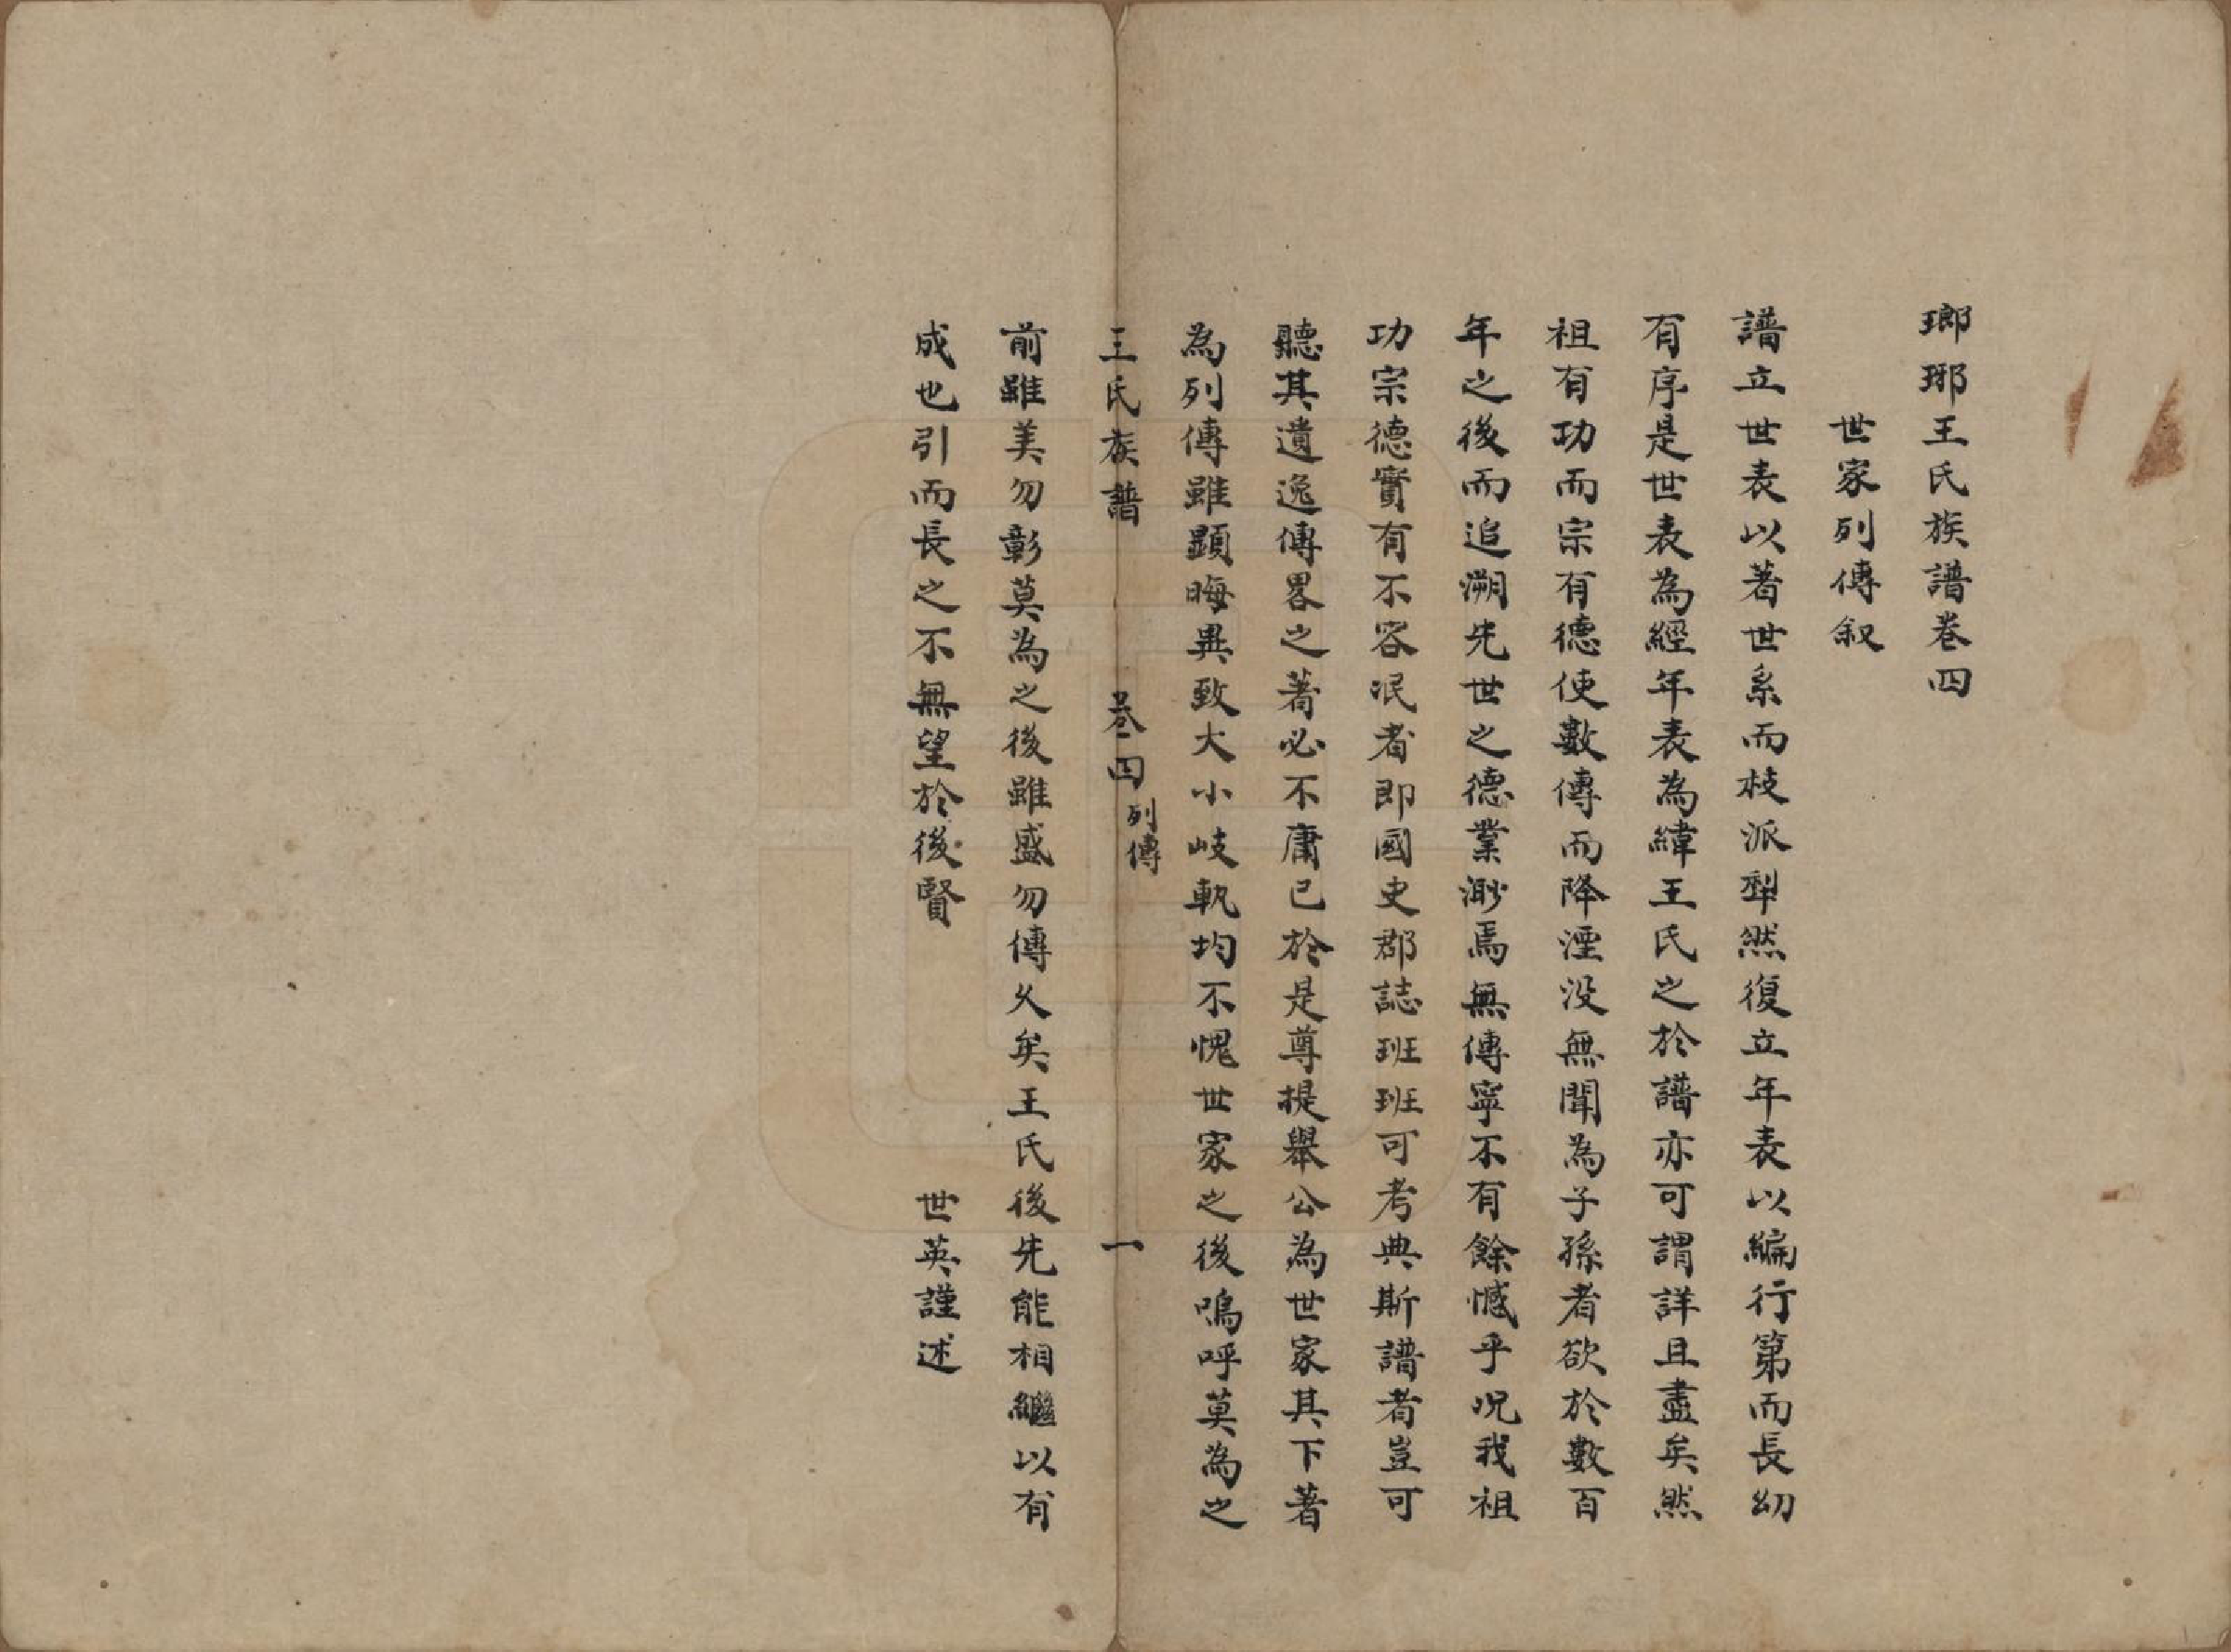 瑯琊王氏族譜卷四
世家列傳叙
譜立世表以著世系而枝派犁然復立年表以編行第而長幼
有序是世表為經年表為緯王氏之於譜亦可謂詳且盡矣然
祖有功而宗有德使數傳而降湮没無聞為子孫者欲於數百
年之後而追溯先世之德業渺焉無傳寧不有餘憾乎况我祖
功宗德實有不容泯者即國史郡誌班班可考典斯譜者豈可
聽其遺逸傳畧之著必不庸已於是尊提舉公為世家其下著
為列傳雖顕晦異致大小岐軌均不愧世家之後嗚呼莫為之
王氏族譜 卷四 列傳 一
前雖美勿彰莫為之後雖盛勿傳久矣王氏後先能相繼以有
成也引而長之不無望於後賢 世英謹述